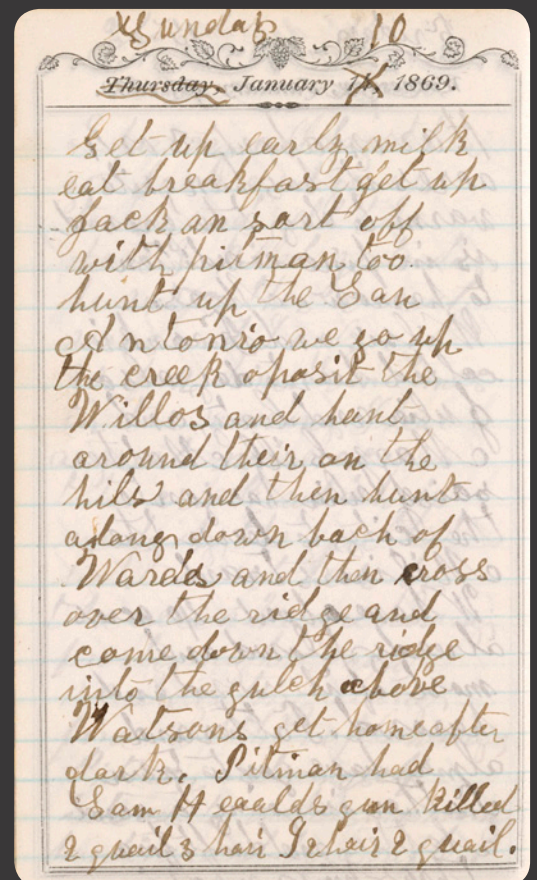 Sunday 10
Thursday, January 14, 1869.
Get up early milk
eat breakfast get up
Jack an sart off
with pitman too
hunt up the San
Antonio we go up
the creek oposit the
Willos and hunt
around their on the
hils and then hunt
along down back of
Wards and then cross
over the ridge and
come down the ridge
into the gulch above
Watsons get home after
dark. Pitman had
Sam Heaalds gun killed
2 quail 3 hair I 2 hair 2 quail.